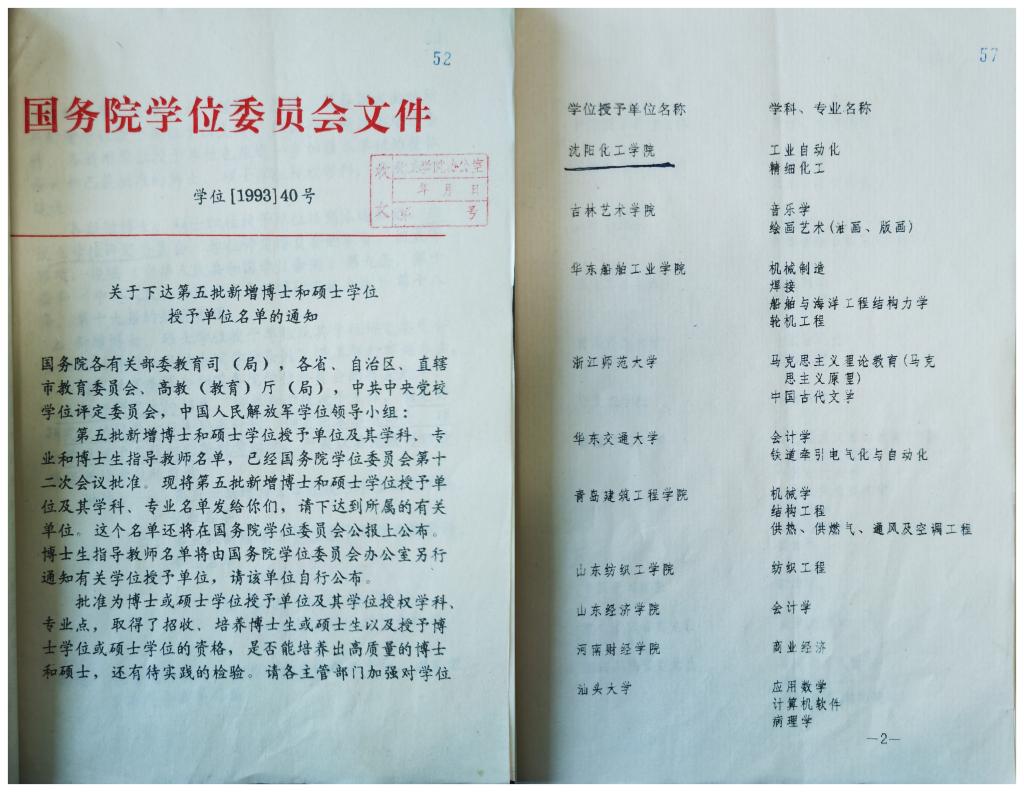 52
国务院学位委员会文件
学位[1993]40号
收 学院办公室
年 月 日
文 第 号
关于下达第五批新增博士和硕士学位
授予单位名单的通知
国务院各有关部委教育司（局），各省、自治区、直辖
市教育委员会、高教（教育）厅（局），中共中央党校
学位评定委员会，中国人民解放军学位领导小组：
第五批新增博士和硕士学位授予单位及其学科、专
业和博士生指导教师名单，已经国务院学位委员会第十
二次会议批准。现将第五批新增博士和硕士学位授予单
位及其学科、专业名单发给你们，请下达到所属的有关
单位。这个名单还将在国务院学位委员会公报上公布。
博士生指导教师名单将由国务院学位委员会办公室另行
通知有关学位授予单位，请该单位自行公布。
批准为博士或硕士学位授予单位及其学位授权学科、
专业点，取得了招收、培养博士生或硕士生以及授予博
士学位或硕士学位的资格，是否能培养出高质量的博士
和硕士，还有待实践的检验。请各主管部门加强对学位
57
学位授予单位名称 学科、专业名称
沈阳化工学院 工业自动化
精细化工
吉林艺术学院 音乐学
绘画艺术(油画、版画)
华东船舶工业学院 机械制造
焊接
船舶与海洋工程结构力学
轮机工程
浙江师范大学 马克思主义理论教育(马克
思主义原理)
中国古代文学
华东交通大学 会计学
铁道牵引电气化与自动化
青岛建筑工程学院 机械学
结构工程
供热、供燃气、通风及空调工程
山东纺织工学院 纺织工程
山东经济学院 会计学
河南财经学院 商业经济
汕头大学 应用数学
计算机软件
病理学
—2—